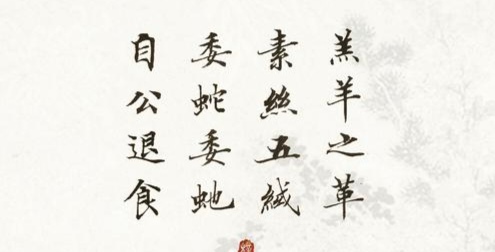 羔羊之革
素絲五緎
委蛇委虵
自公退食